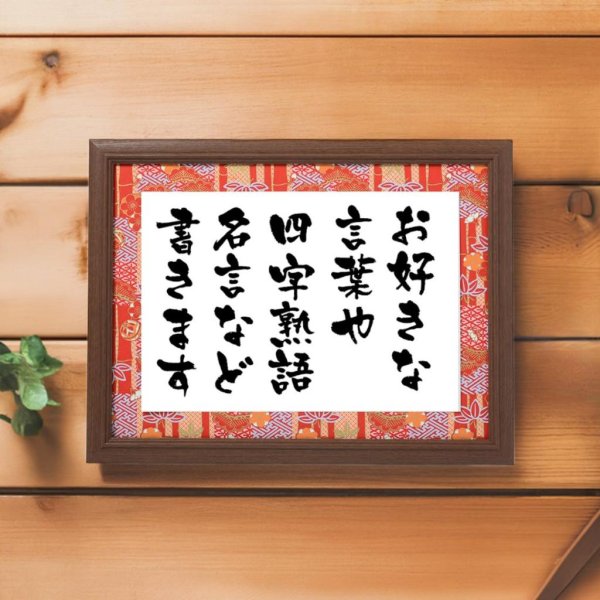 お好きな
言葉や
四字熟語
名言など
書きます